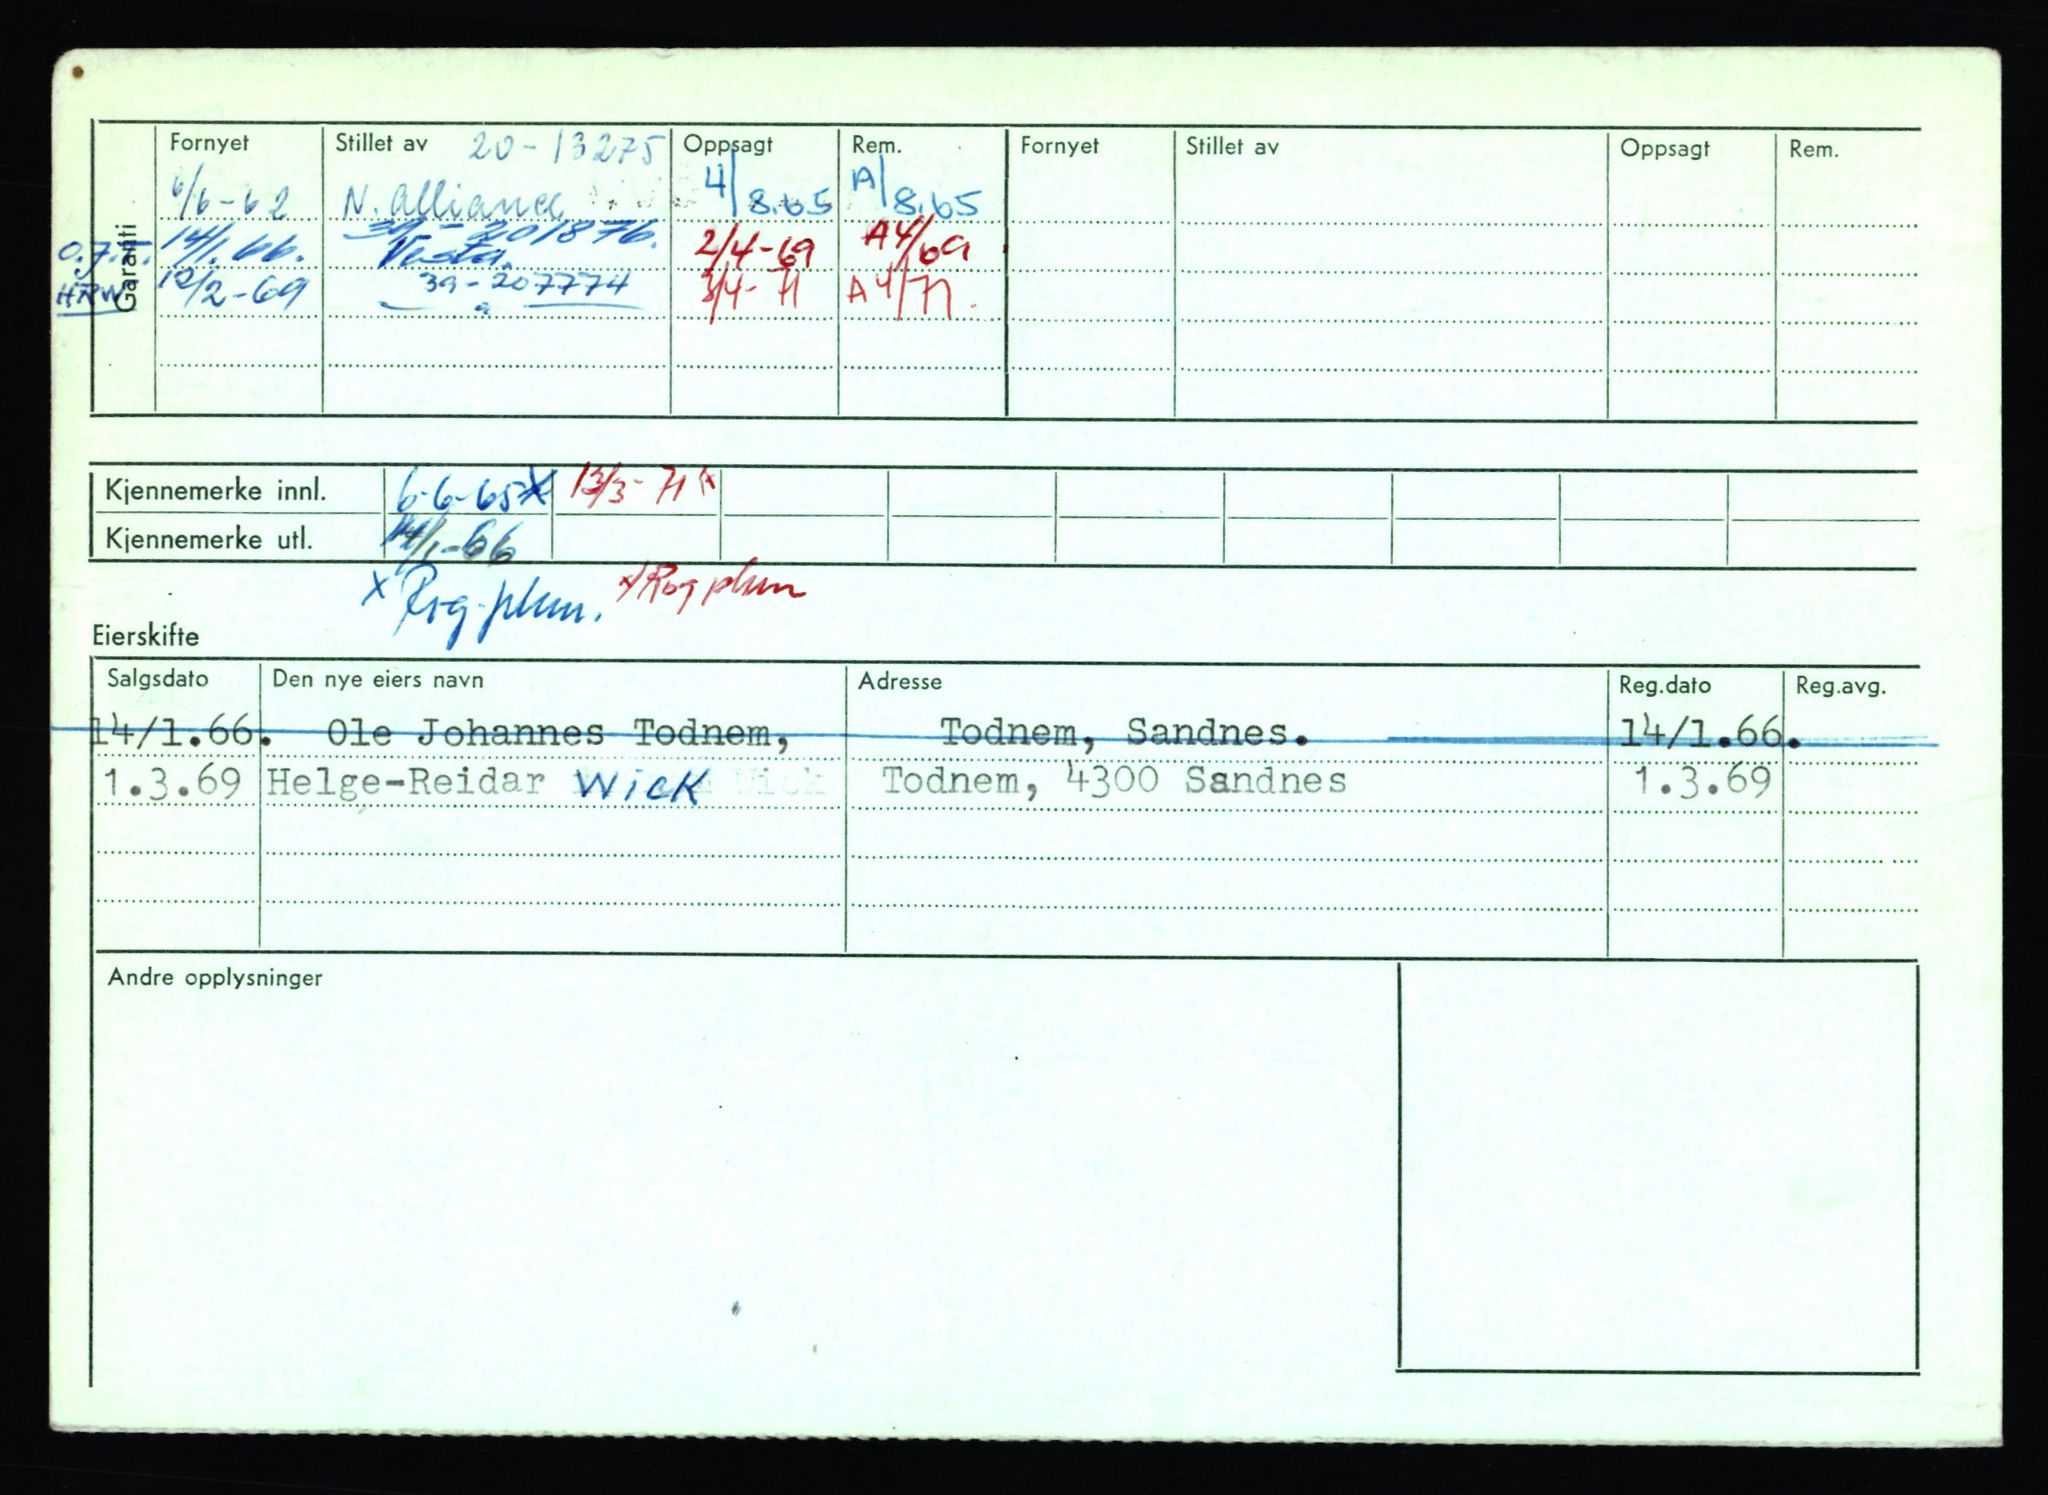 Fornyet Stillet av 20-13275 Oppsagt Rem. Fornyet Stillet av Oppsagt Rem.
Garanti
6/6-62 N. Alliance 4/8.65 A/8.65
O.J.T. 14/1.66. 39-201876. Vesta. 2/4-69 A4/69
HRW 12/2-69 39-207774 3/4-71 A4/71.
Kjennemerke innl. 6-6-65x 13/3-71 x
Kjennemerke utl. 14/1-66
x Rog.plum. x/Rog plum
Eierskifte
Salgsdato Den nye eiers navn Adresse Reg.dato Reg.avg.
14/1.66. Ole Johannes Todnem, Todnem, Sandnes. 14/1.66.
1.3.69 Helge-Reidar Wick Todnem, 4300 Sandnes 1.3.69
Andre opplysninger